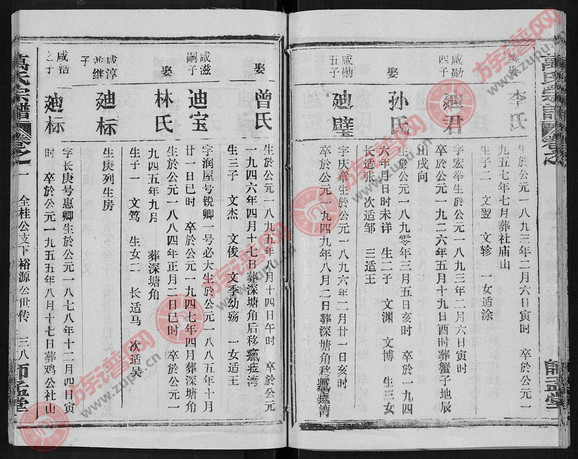 萬氏宗譜
李氏
生於公元一八九三年二月六日寅時
卒於公元一
九五七年七月葬社庙山
生子二 文翌 文轸 女适涂
咸勋四子
廸君
字宏举生於公元一八九三年二月六日寅时
卒於公元一九二六年五月十六日时葬蟹子地辰
山戌向
娶
孙氏
生於公元一八九零年三月五日亥时 卒於公元一九四
六年月日时未详 生二子 文渊 文博 生三女
长适张 次适邹 三适王
咸勋五子
廸璧
字庆章生於公元一八九六年二月廿一日亥时
卒於公元一九四九年八月二日葬深塘角后移
師孟堂
娶
曾氏
生於公元一八九五年八月
一九四六年四月十七日葬深塘角后移
生三子 文杰 文俊 文季幼殇 一女适王
咸滋嗣子
迪宝
字润屋号锐卿一号必大生於公元一八八五年十月
廿一日巳时 卒於公元一九四七年四月葬深塘角
娶
林氏
生於公元一八八四年正月二日戌时 卒於公元一
九四五年九月 葬深塘角
生子一 文笃 生女二 长适马 次适吴
咸淳
廸标
生庚列生房
咸浩之子
廸标
字长庚号惠卿生於公元一八七八年十二月四日寅
时 卒於公元一九五五年八月十七日葬鸡公社山
萬氏宗譜
卷之一 全桂公支下裕源公世传 三八
师孟堂
族谱网
www.zupu.cn